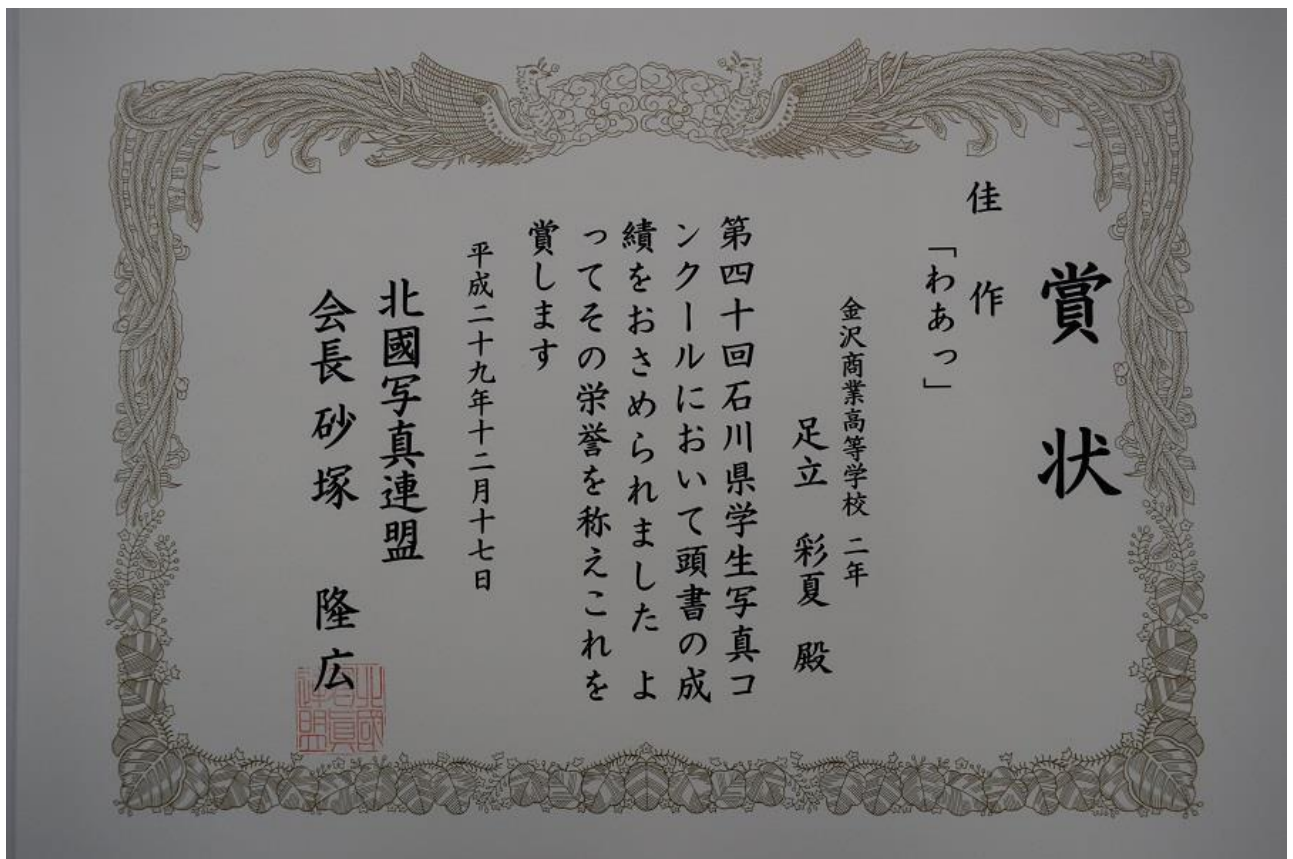 賞状
佳作
「わあっ」
金沢商業高等学校 二年
足立 彩夏 殿
第四十回石川県学生写真コ
ンクールにおいて頭書の成
績をおさめられました よ
ってその栄誉を称えこれを
賞します
平成二十九年十二月十七日
北國写真連盟
会長 砂塚 隆広
北國
寫眞
連盟